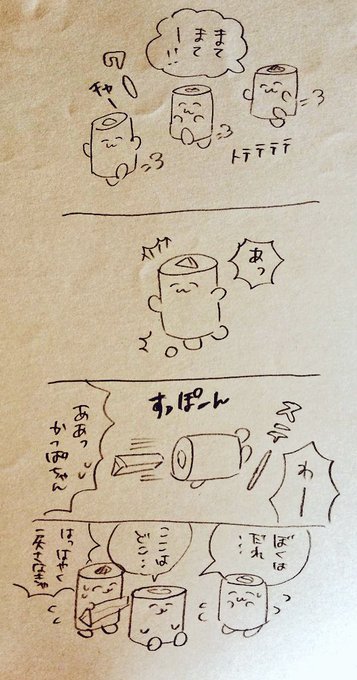 まて
まて
ー!!
キャー
トテテテテ
あっ
わー
すっぽーん
ああっ
かっぱちゃん
ぼくは
だれ…
ここは
どこ…
はっはやく
戻さなきゃ